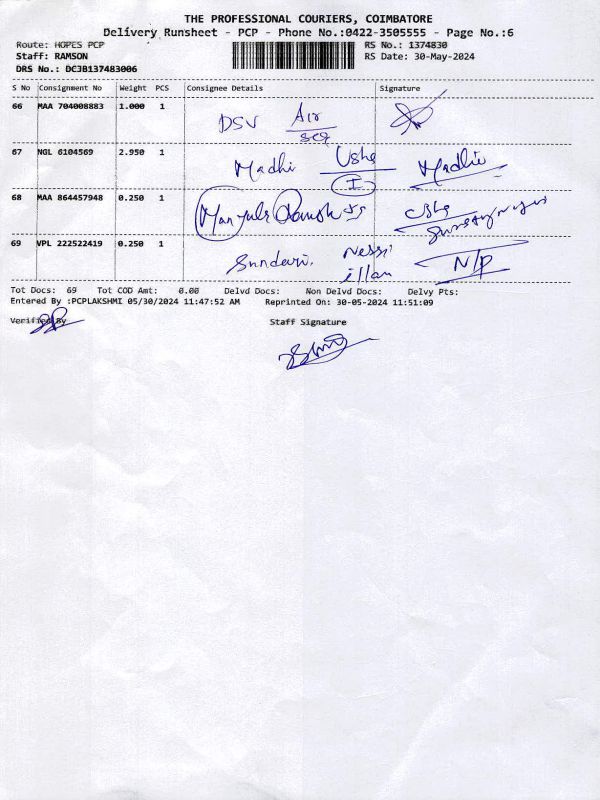 THE PROFESSIONAL COURIERS, COIMBATORE
Delivery Runsheet - PCP - Phone No.:0422-3505555 - Page No.:6
Route: HOPES PCP RS No.: 1374830
Staff: RAMSON RS Date: 30-May-2024
DRS No.: DCJB137483006
S No Consignment No Weight PCS Consignee Details Signature
66 MAA 704008883 1.000 1 DSV Air
67 NGL 6104569 2.950 1 Madhi Usha I Madhu
68 MAA 864457948 0.250 1 Manjula Ramesh Usha
69 VPL 222522419 0.250 1 Sundari. illam N/P
Tot Docs: 69 Tot COD Amt: 0.00 Delvd Docs: Non Delvd Docs: Delvy Pts:
Entered By :PCPLAKSHMI 05/30/2024 11:47:52 AM Reprinted On: 30-05-2024 11:51:09
Verified By Staff Signature